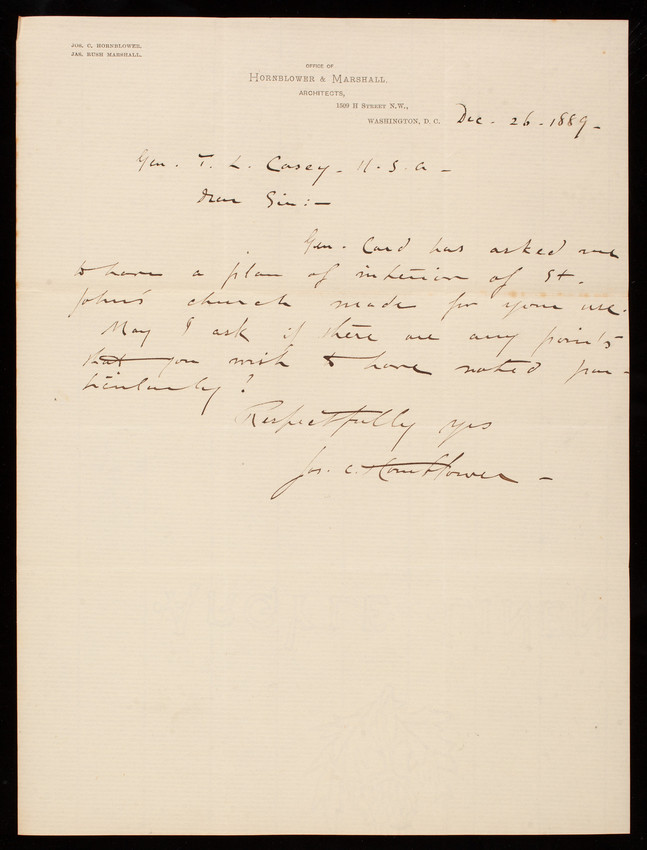 JOS. C. HORNBLOWER.
JAS. RUSH MARSHALL.
OFFICE OF
HORNBLOWER & MARSHALL.
ARCHITECTS,
1509 H STREET N.W.,
WASHINGTON, D. C. Dec - 26 - 1889 -
Gen. T. L. Casey - U. S. A -
Dear Sir: -
Gen. Card has asked me
to have a plan of interior of St.
John's church made for your use.
May I ask if there are any points
that you wish to have noted par-
ticularly?
Respectfully yrs
Jos. C. Hornblower -